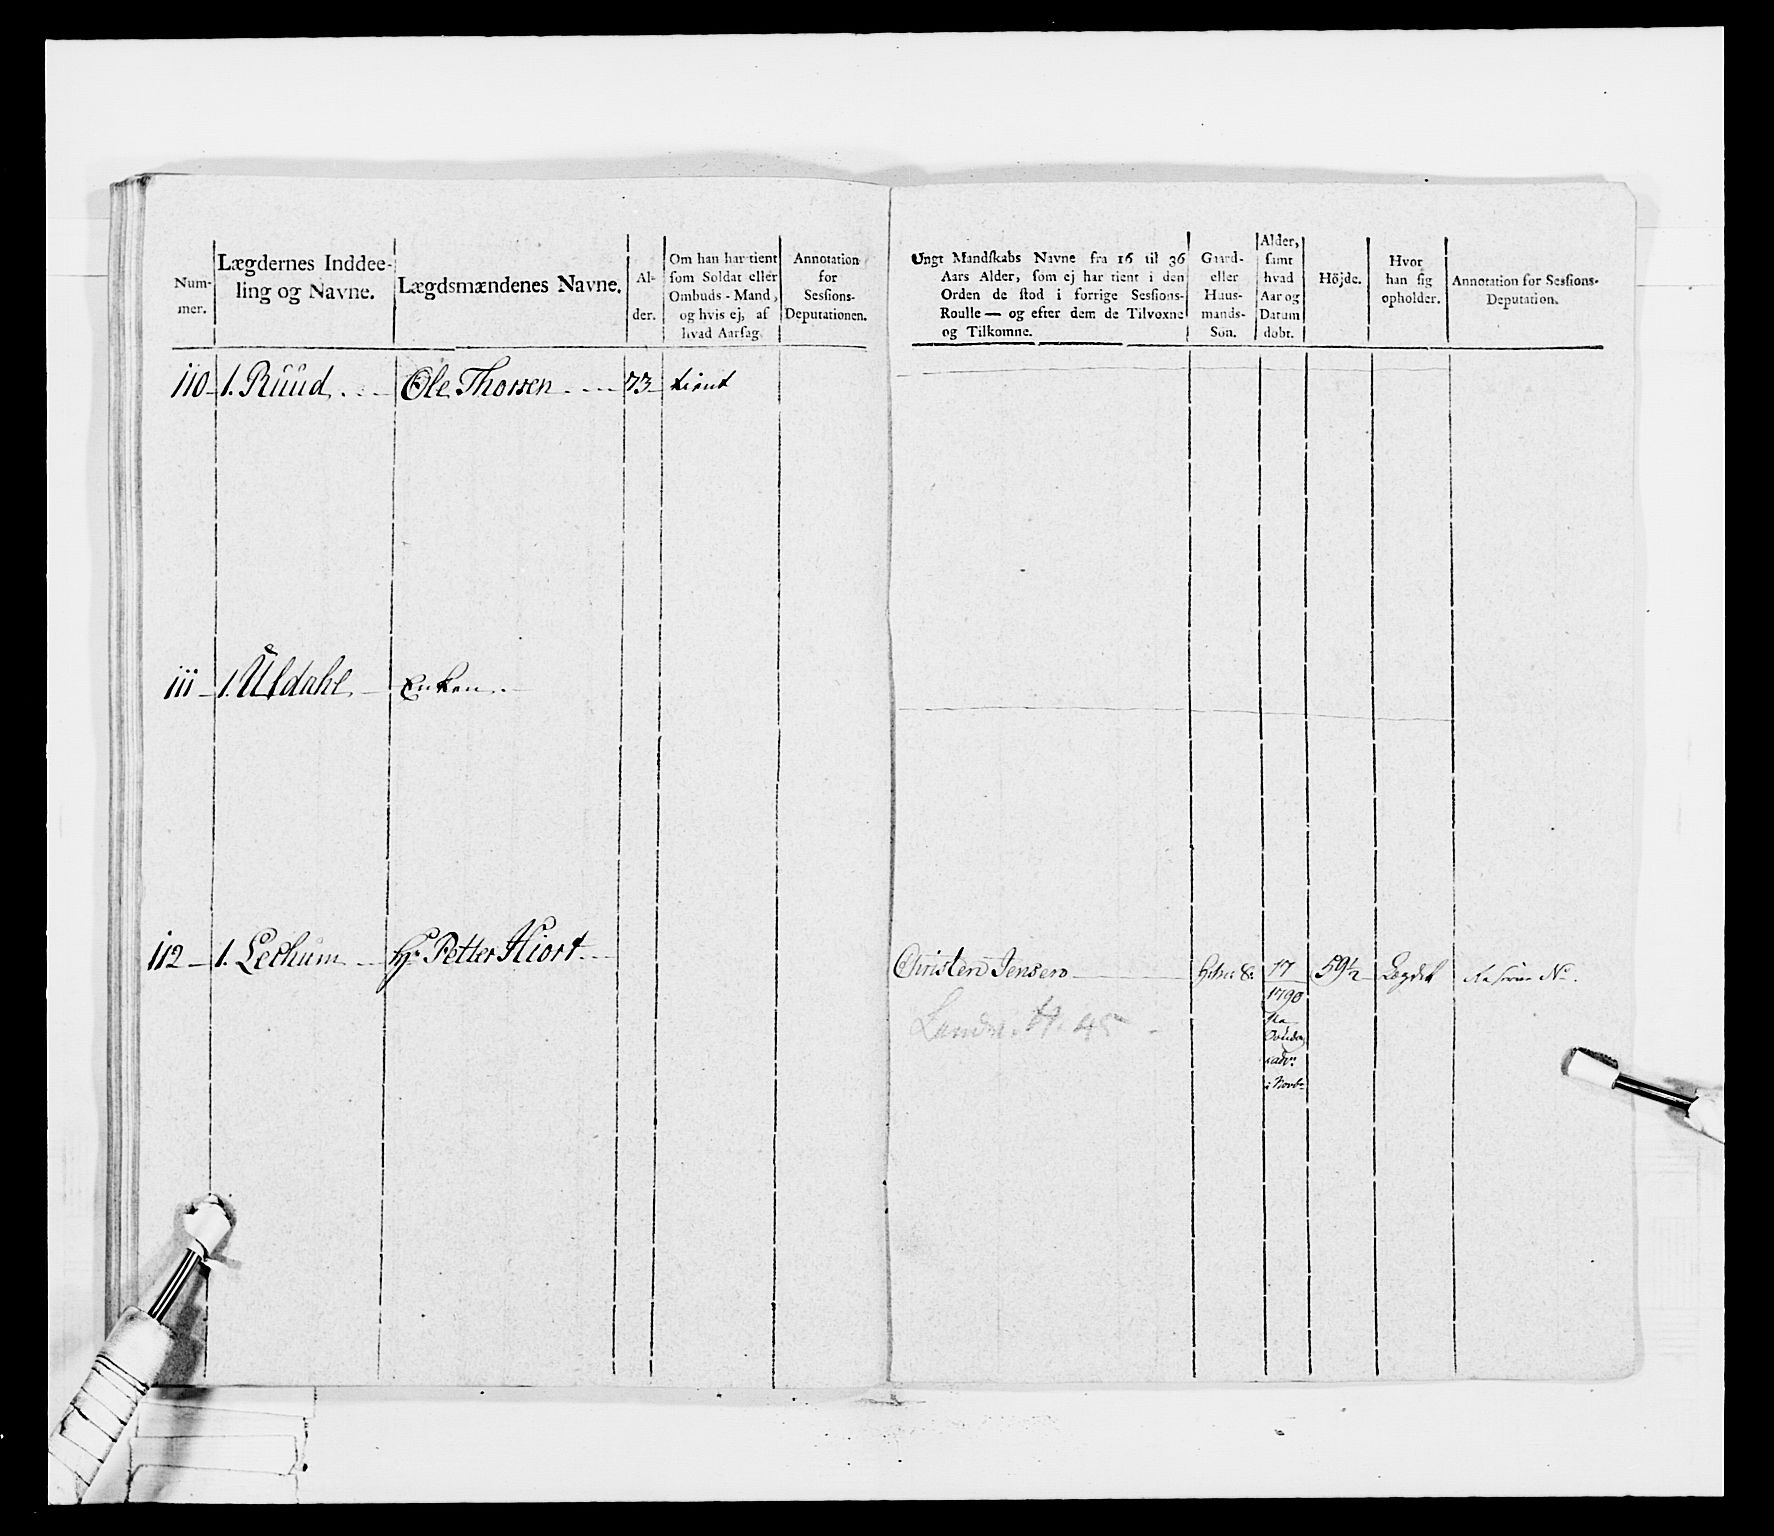 Num-
mer.
Lægdernes Inddee-
ling og Navne.
Lægdsmændenes Navne.
Al-
der.
Om han har tient
som Soldat eller
Ombuds-Mand,
og hvis ej, af
hvad Aarsag.
Annotation
for
Sessions-
Deputationen.
110 1. Ruud Ole Thorsen 73 tient
111 1. Uldahl Enken
112 1. Lechum Hr Petter Hiort
Ungt Mandskabs Navne fra 16 til 36
Aars Alder, som ej har tient i den
Orden de stod i forrige Sessions-
Roulle — og efter dem de Tilvoxne
og Tilkomne.
Gaard-
eller
Huus-
mands-
Søn.
Alder,
samt
hvad
Aar og
Datum
døbt.
Höjde.
Hvor
han sig
opholder.
Annotation for Sessions-
Deputation.
Christen Jensen 17 59½ Legdet
1790